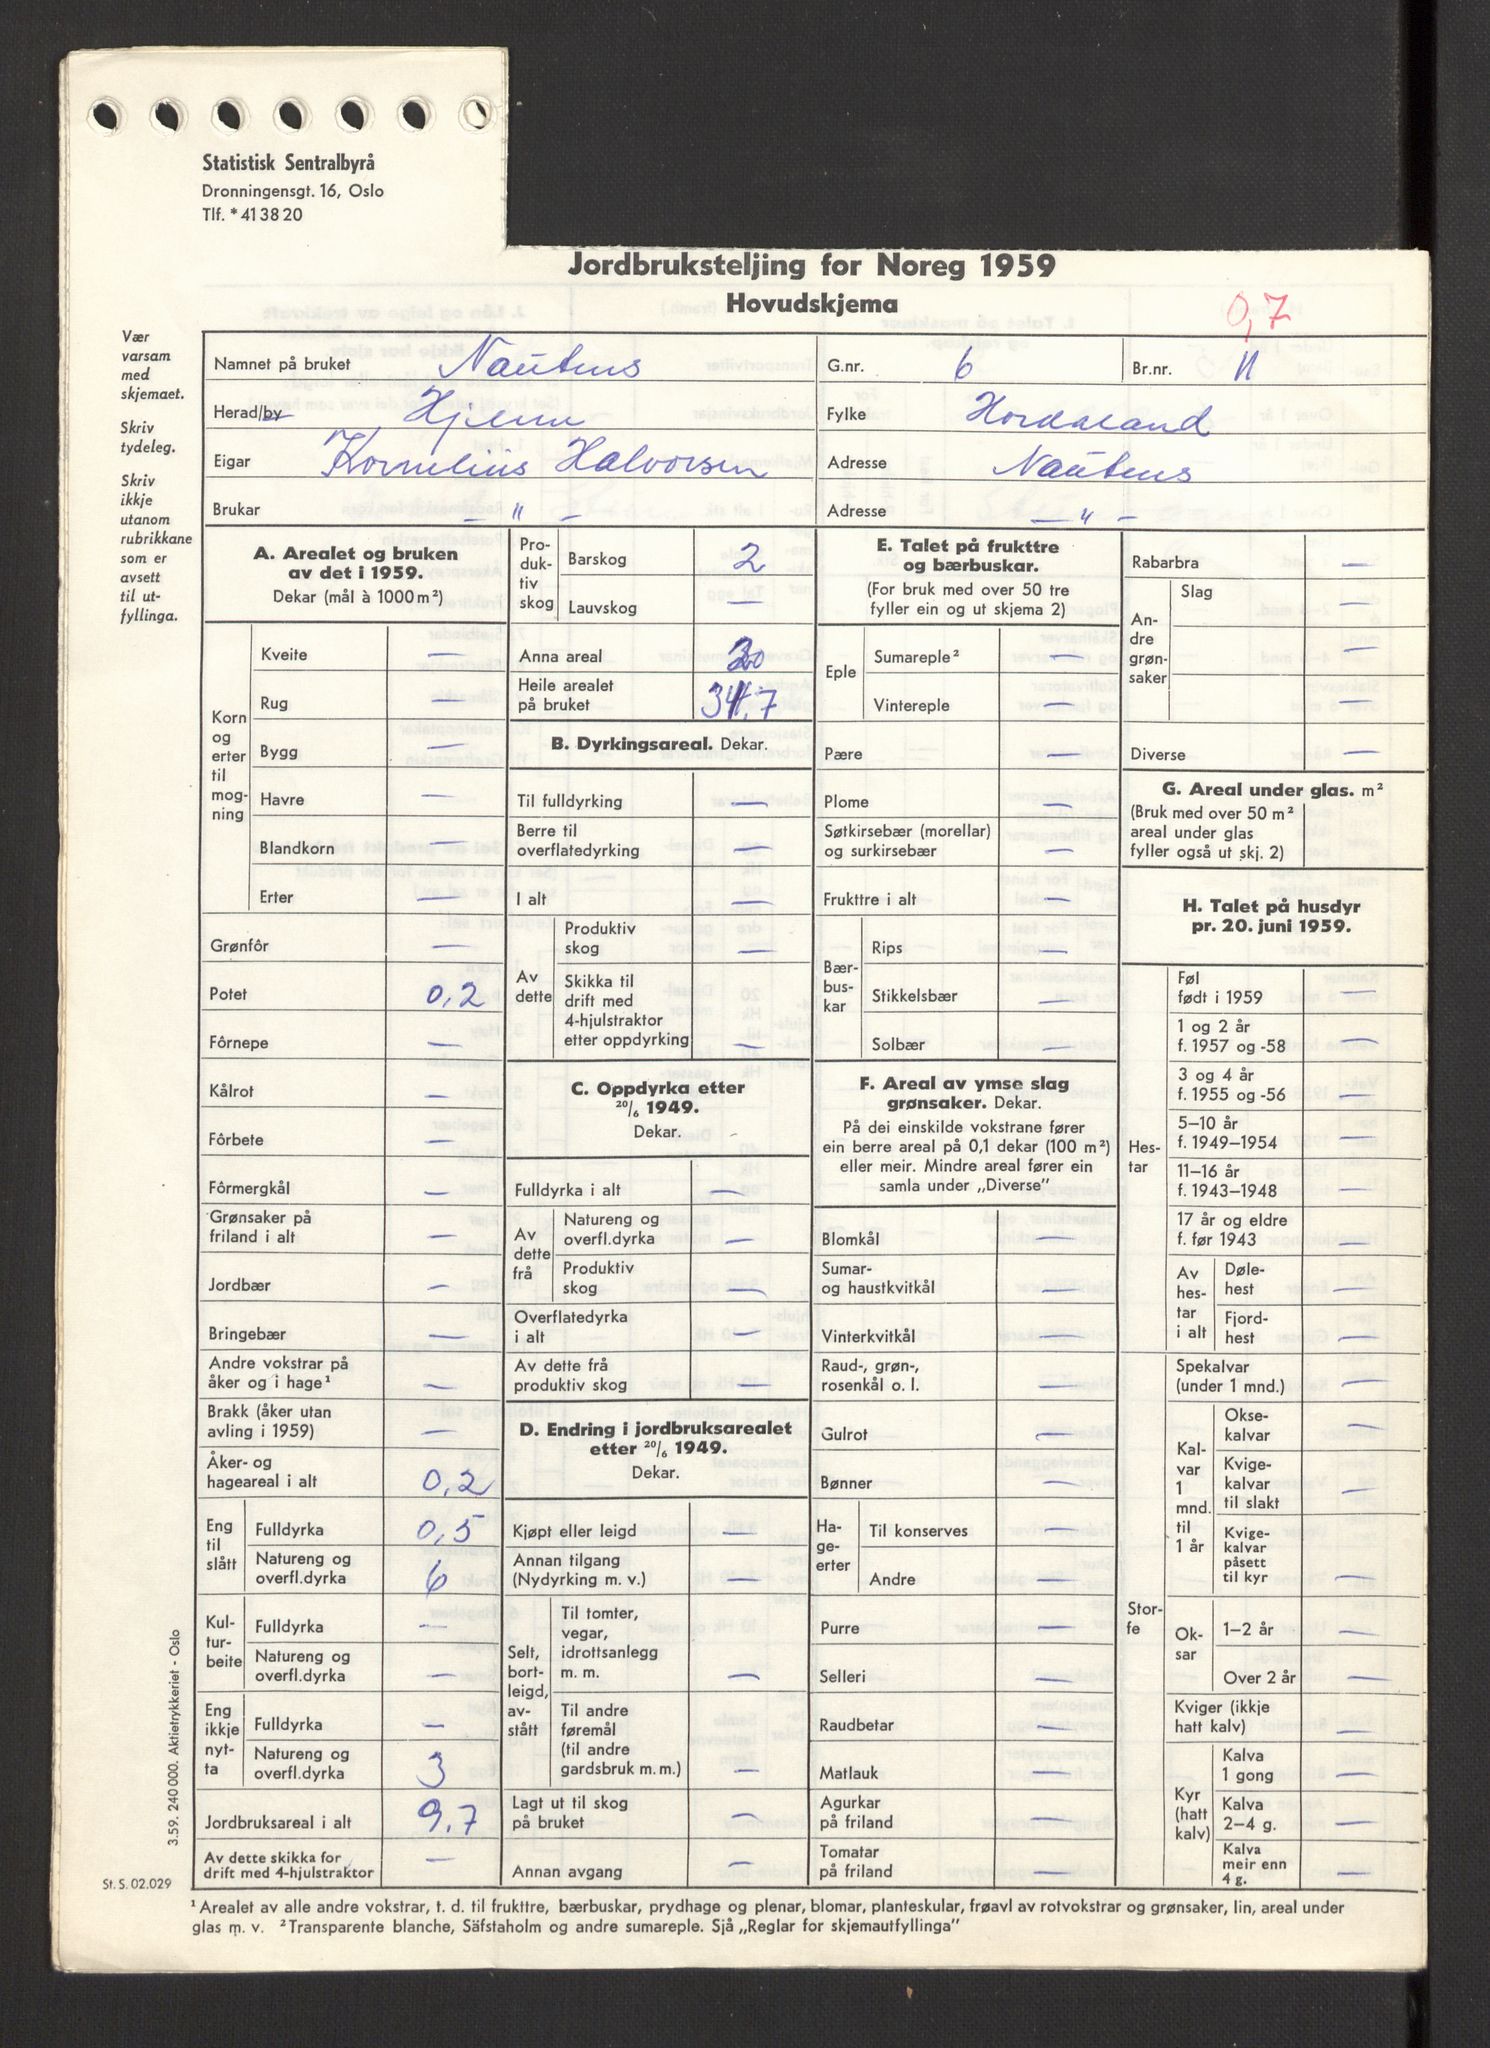 Statistisk Sentralbyrå
Dronningensgt. 16, Oslo
Tlf. * 41 38 20
Jordbruksteljing for Noreg 1959
Hovudskjema
0,7
Vær
varsam
med
skjemaet.
Skriv
tydeleg.
Skriv
ikkje
utanom
rubrikkane
som er
avsett
til ut-
fyllinga.
Namnet på bruket Nautnes G.nr. 6 Br.nr. 11
Herad/by Hjelme Fylke Hordaland
Eigar Kornelius Halvorsen Adresse Nautnes
Brukar — " — Adresse — " —
A. Arealet og bruken
av det i 1959.
Dekar (mål à 1000 m²)
Korn
og
erter
til
mog-
ning
Kveite —
Rug —
Bygg —
Havre —
Blandkorn —
Erter —
Grønfôr —
Potet 0,2
Fôrnepe —
Kålrot —
Fôrbete —
Fôrmergkål —
Grønsaker på
friland i alt —
Jordbær —
Bringebær —
Andre vokstrar på
åker og i hage¹ —
Brakk (åker utan
avling i 1959) —
Åker- og
hageareal i alt 0,2
Eng
til
slått
Fulldyrka 0,5
Natureng og
overfl.dyrka 6
Kul-
tur-
beite
Fulldyrka —
Natureng og
overfl.dyrka —
Eng
ikkje
nyt-
ta
Fulldyrka —
Natureng og
overfl.dyrka 3
Jordbruksareal i alt 9,7
Av dette skikka for
drift med 4-hjulstraktor —
Pro-
duk-
tiv
skog
Barskog 2
Lauvskog —
Anna areal
Heile arealet
på bruket
B. Dyrkingsareal. Dekar.
Til fulldyrking —
Berre til
overflatedyrking —
I alt —
Av
dette
Produktiv
skog —
Skikka til
drift med
4-hjulstraktor
etter oppdyrking —
C. Oppdyrka etter
20/6 1949.
Dekar.
Fulldyrka i alt —
Av
dette
frå
Natureng og
overfl.dyrka —
Produktiv
skog —
Overflatedyrka
i alt —
Av dette frå
produktiv skog —
D. Endring i jordbruksarealet
etter 20/6 1949.
Dekar.
Kjøpt eller leigd —
Annan tilgang
(Nydyrking m. v.) —
Selt,
bort-
leigd,
av-
stått
Til tomter,
vegar,
idrottsanlegg
m. m. —
Til andre
føremål
(til andre
gardsbruk m. m.) —
Lagt ut til skog
på bruket —
Annan avgang —
E. Talet på frukttre
og bærbuskar.
(For bruk med over 50 tre
fyller ein og ut skjema 2)
Eple
Sumareple² —
Vintereple —
Pære —
Plome —
Søtkirsebær (morellar)
og surkirsebær —
Frukttre i alt —
Bær-
bus-
kar
Rips —
Stikkelsbær —
Solbær —
F. Areal av ymse slag
grønsaker. Dekar.
På dei einskilde vokstrane fører
ein berre areal på 0,1 dekar (100 m²)
eller meir. Mindre areal fører ein
samla under „Diverse"
Blomkål —
Sumar-
og haustkvitkål —
Vinterkvitkål —
Raud-, grøn-,
rosenkål o. l. —
Gulrot —
Bønner —
Ha-
ge-
erter
Til konserves —
Andre —
Purre —
Selleri —
Raudbetar —
Matlauk —
Agurkar
på friland —
Tomatar
på friland —
Rabarbra —
An-
dre
grøn-
saker
Slag —
—
—
Diverse —
G. Areal under glas. m²
(Bruk med over 50 m²
areal under glas
fyller også ut skj. 2)
H. Talet på husdyr
pr. 20. juni 1959.
Hes-
tar
Føl
født i 1959 —
1 og 2 år
f. 1957 og -58 —
3 og 4 år
f. 1955 og -56 —
5–10 år
f. 1949–1954 —
11–16 år
f. 1943–1948 —
17 år og eldre
f. før 1943 —
Av
hes-
tar
i alt
Døle-
hest —
Fjord-
hest —
Stor-
fe
Spekalvar
(under 1 mnd.) —
Kal-
var
1
mnd.
til
1 år
Okse-
kalvar —
Kvige-
kalvar
til slakt —
Kvige-
kalvar
påsett
til kyr —
Ok-
sar
1–2 år —
Over 2 år —
Kviger (ikkje
hatt kalv) —
Kyr
(hatt
kalv)
Kalva
1 gong —
Kalva
2–4 g. —
Kalva
meir enn
4 g. —
3.59. 240 000. Aktietrykkeriet - Oslo
St. S. 02.029
¹ Arealet av alle andre vokstrar, t. d. til frukttre, bærbuskar, prydhage og plenar, blomar, planteskular, frøavl av rotvokstrar og grønsaker, lin, areal under
glas m. v. ² Transparente blanche, Säfstaholm og andre sumareple. Sjå „Reglar for skjemautfyllinga"